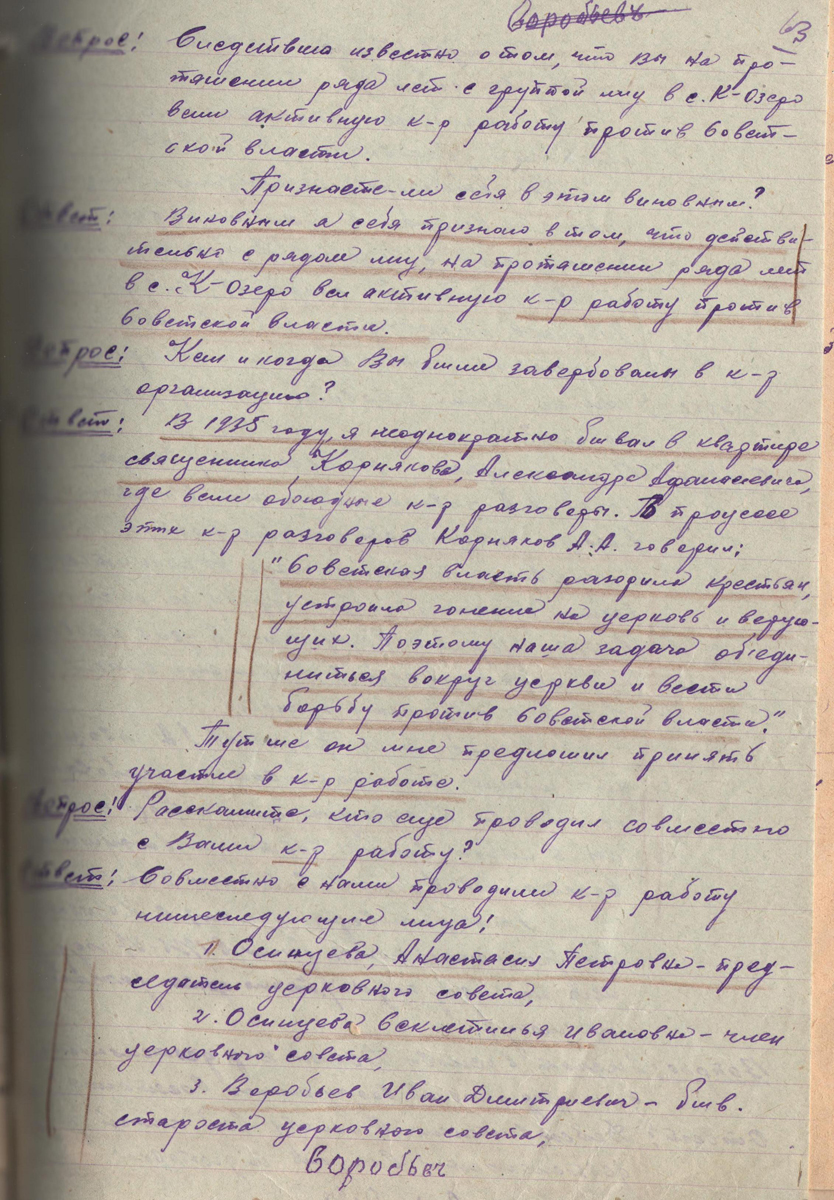 Воробьевъ
63
Вопрос: Следствию известно о том, что Вы на про-
тяжении ряда лет с группой лиц в с. К-Озеро
вели активную к-р работу против Совет-
ской власти.
Признаете-ли себя в этом виновным?
Ответ: Виновным я себя признаю в том, что действи-
тельно с рядом лиц, на протяжении ряда лет
в с. К-Озеро вел активную к-р работу против
Советской власти.
Вопрос: Кем и когда Вы были завербованы в к-р
организацию?
Ответ: В 1935 году, я неоднократно бывал в квартире
священника, Корнякова, Александра Афанасьевича,
где вели обоюдные к-р разговоры. В процессе
этих к-р разговоров Корняков А.А. говорил:
"Советская власть разорила крестьян,
устроила гонение на церковь и верую-
щих. Поэтому наша задача об'еди-
ниться вокруг церкви и вести
борьбу против Советской власти."
Тут же он мне предложил принять
участие в к-р работе.
Вопрос: Расскажите, кто еще проводил совместно
с Вами к-р работу?
Ответ: Совместно с нами проводили к-р работу
нижеследующие лица:
1. Осинцева, Анастасия Петровна – пред-
седатель церковного совета,
2. Осинцева Ивановна – член
церковного совета,
3. Воробьев Иван Дмитриевич – бывш.
староста церковного совета,
Воробьевъ